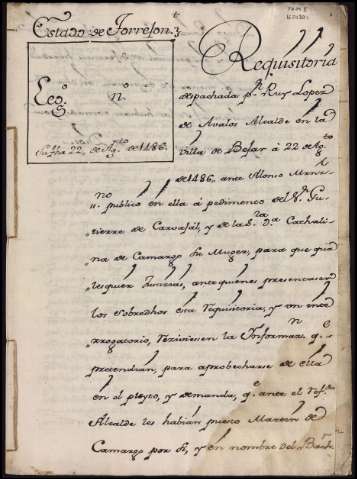 Estado de Torrejon.
Leg.o n.o
Su fha 22 de Ag.to de 1486.
Requisitoria
despachada p.r Ruy Lopez
de Avalos Alcalde en la
villa de Bejar á 22 de Ag.to
de 1486. ante Alonso
no publico en ella á pedimento del S.r Gu-
tierre de Carvajal, y de la S.ra D.a Cathali-
na de Camargo su Muger, para que qua-
lesquier Justicias, ante quienes presentasen
los sobredhos esta requisitoria, y un inte-
rrogatorio, reziviesen la Informaz.n q.e
pretendian, para aprobecharse de ella
en el pleyto, y demanda, q.e ante el
Alcalde les habian puesto Martin de
Camargo por si, y en nombre del Bach.r